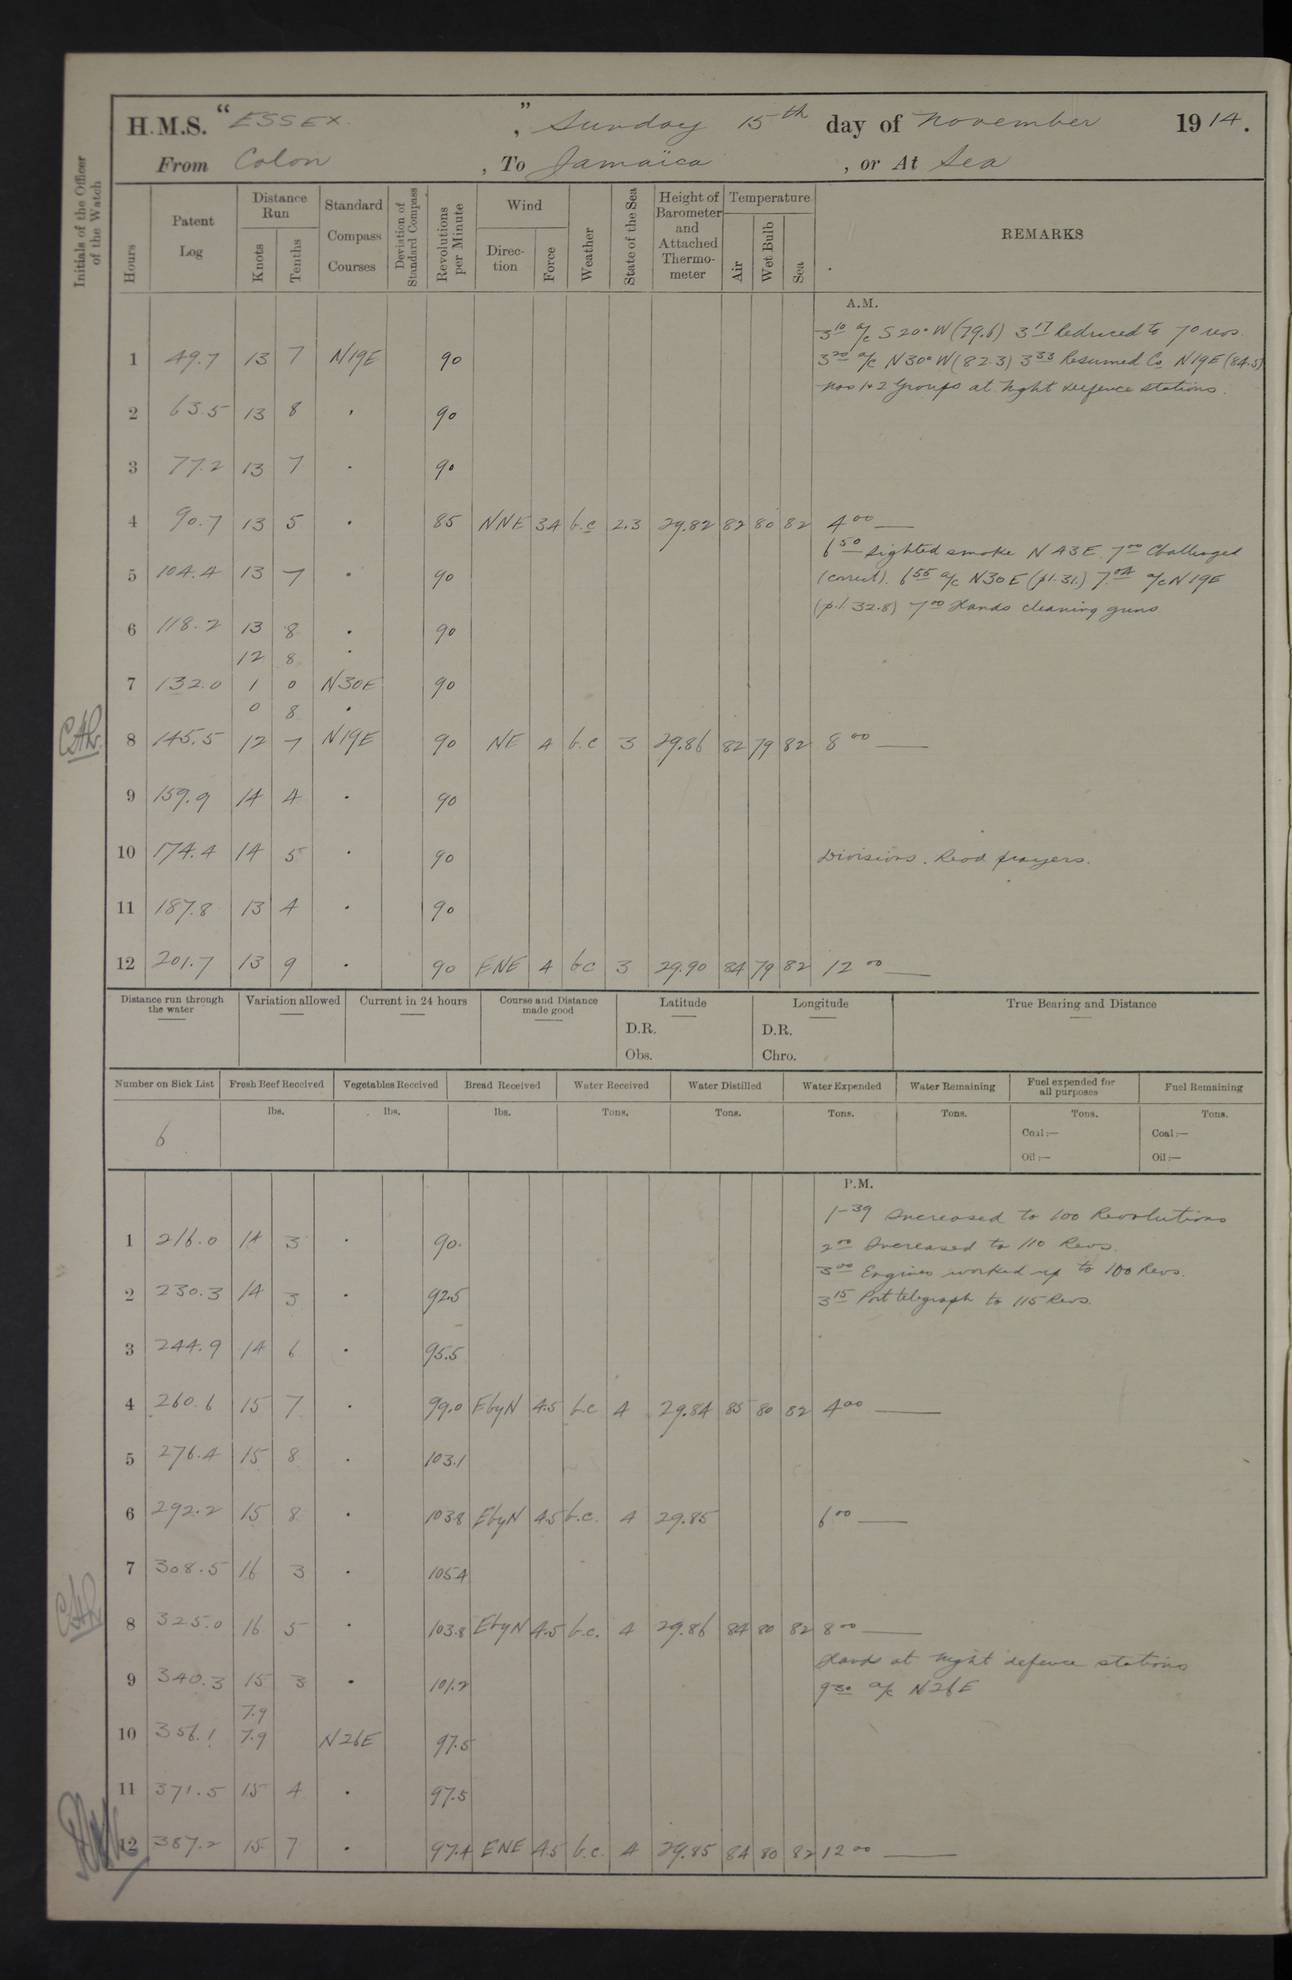 H.M.S. "ESSEX.", Sunday 15th day of November 1914.
From Colon, To Jamaica, or At Sea
Initials of the Officer of the Watch
Hours
Patent Log
Distance Run
Knots
Tenths
Standard Compass Courses
Deviation of Standard Compass
Revolutions per Minute
Wind
Direction
Force
Weather
State of the Sea
Height of Barometer and Attached Thermometer
Temperature
Air
Wet Bulb
Sea
REMARKS
A.M.
3 10 a/c S 20° W (79.6) 3 17 Reduced to 70 revs.
1 49.7 13 7 N19E 90 3 20 a/c N 30° W (82.3) 3 33 Resumed Co. N19E (84.5)
Nos 1+2 Groups at Night defence stations.
2 63.5 13 8 . 90
3 77.2 13 7 . 90
4 90.7 13 5 . 85 NNE 34 b.c 2.3 29.82 82 80 82 4 00
6 50 Sighted smoke N43E. 7 00 Challenged
5 104.4 13 7 . 90 (correct). 6 55 a/c N30E (pl. 31.) 7 04 a/c N19E
(p.l 32.8) 7 00 Hands cleaning guns
6 118.2 13 8 . 90
12 8 .
7 132.0 1 0 N30E 90
0 8 .
8 145.5 12 7 N19E 90 NE 4 b.c 3 29.86 82 79 82 8 00
9 159.9 14 4 . 90
10 174.4 14 5 . 90 Divisions. Read prayers.
11 187.8 13 4 . 90
12 201.7 13 9 . 90 ENE 4 bc 3 29.90 84 79 82 12 00
Distance run through the water
Variation allowed
Current in 24 hours
Course and Distance made good
Latitude
D.R.
Obs.
Longitude
D.R.
Chro.
True Bearing and Distance
Number on Sick List
Fresh Beef Received
Vegetables Received
Bread Received
Water Received
Water Distilled
Water Expended
Water Remaining
Fuel expended for all purposes
Fuel Remaining
lbs. lbs. lbs. Tons. Tons. Tons. Tons. Tons. Tons.
6 Coal:— Coal:—
Oil:— Oil:—
P.M.
1-39 Increased to 100 Revolutions
1 216.0 14 3 . 90. 2 00 Increased to 110 Revs.
3 00 Engines worked up to 100 Revs.
2 230.3 14 3 . 92.5 3 15 Port telegraph to 115 Revs.
3 244.9 14 6 . 95.5
4 260.6 15 7 . 99.0 EbyN 4.5 b.c 4 29.84 85 80 82 4 00
5 276.4 15 8 . 103.1
6 292.2 15 8 . 103.8 EbyN 4.5 b.c. 4 29.85 6 00
7 308.5 16 3 . 105.4
8 325.0 16 5 . 103.8 EbyN 4.5 b.c. 4 29.86 84 80 82 8 00
Hands at Night defence stations
9 340.3 15 3 . 101.2 9 30 a/c N26E
7.9
10 356.1 7.9 N26E 97.5
11 371.5 15 4 . 97.5
12 387.2 15 7 . 97.4 ENE 4.5 b.c. 4 29.85 84 80 82 12 00